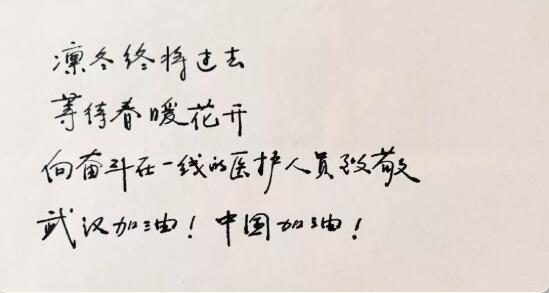 凛冬终将过去
等待春暖花开
向奋斗在一线的医护人员致敬
武汉加油！中国加油！